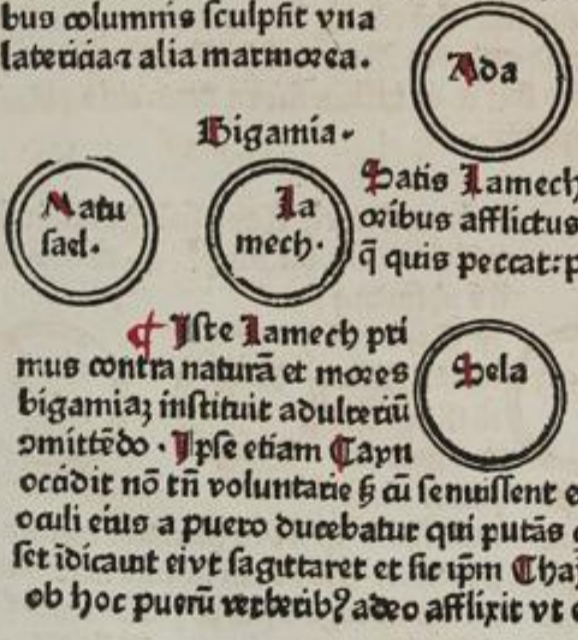 bus columnis sculpsit vna
latericia⁊ alia marmorea.
Ada
Bigamia.
Matu
sael.
La
mech.
Satis Lamech
oribus afflictus
q̃ quis peccat: p
¶ Iste Lamech pri
mus contra naturã et mores
bigamiaꝫ instituit adulteriũ
ꝯmittẽdo. Ipse etiam Cayn
Sela
occidit nõ tñ voluntarie sꝫ cũ senuissent
oculi eius a puero ducebatur qui putãs
set ĩdicauit ei vt sagittaret et sic ip̃m Cha
ob hoc puerũ verberibꝰ adeo afflixit vt